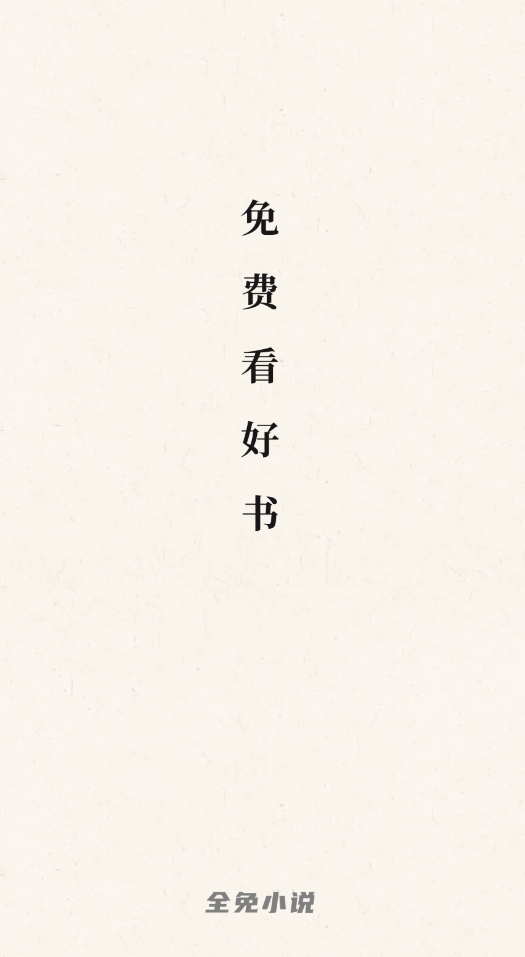 免费看好书
全免小说